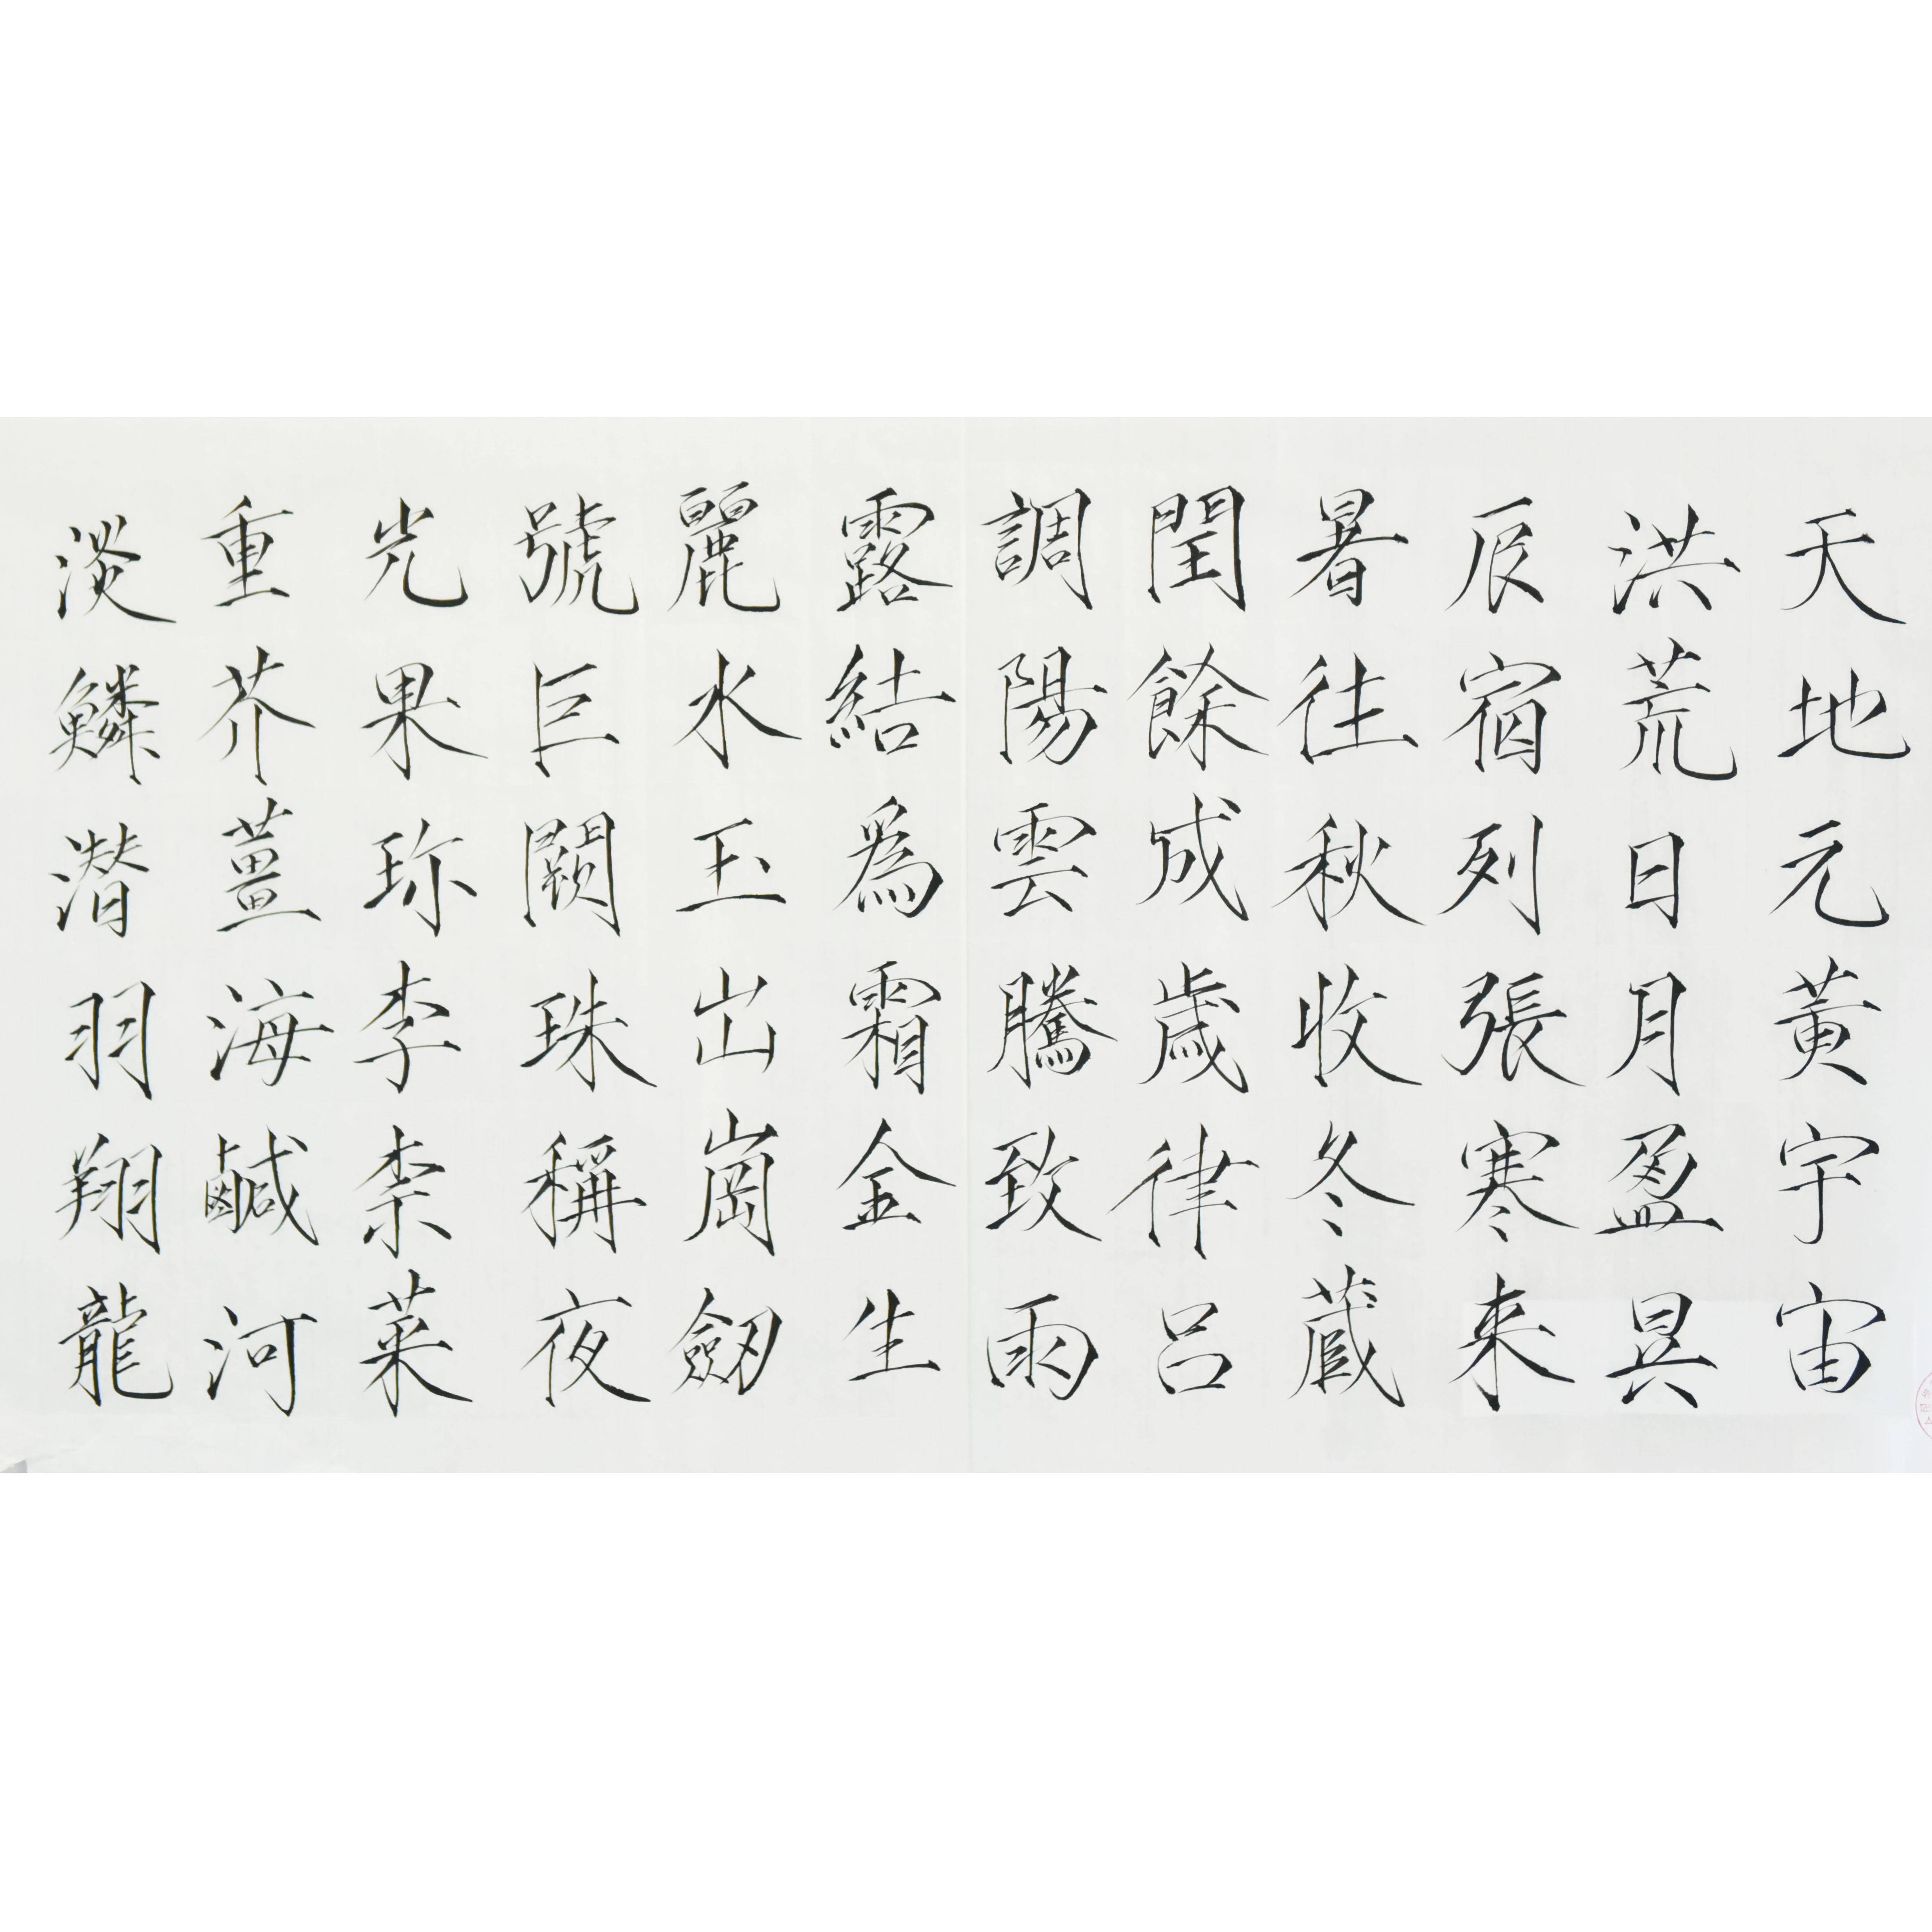 天地元黄宇宙
洪荒日月盈昃
辰宿列張寒来
暑往秋收冬蔵
閏餘成歲律呂
調陽雲騰致雨
露結為霜金生
麗水玉出崗劒
號巨闕珠稱夜
光果珎李柰菜
重芥薑海鹹河
淡鱗潛羽翔龍